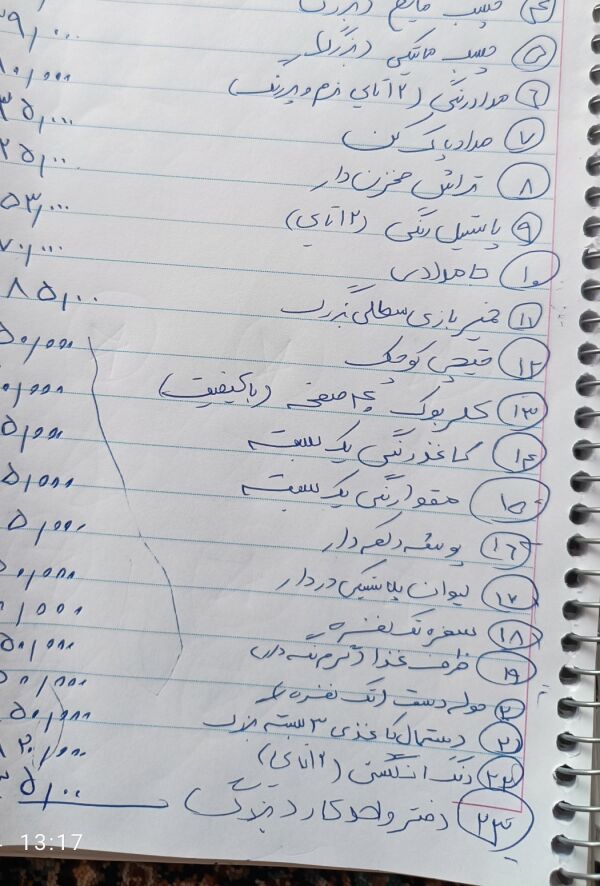 ۴ چسب مایع (بزرگ)
۵ چسب ماتیکی (بزرگ) ۳۹,۰۰۰
۶ مداد رنگی (۱۲ تایی نرم و پررنگ) ۸۰,۰۰۰
۷ مداد پاک کن ۳۵,۰۰۰
۸ تراش مخزن دار ۲۵,۰۰۰
۹ پاستیل رنگی (۱۲ تایی) ۵۳,۰۰۰
۱۰ جامدادی ۷۰,۰۰۰
۱۱ خمیر بازی سطلی بزرگ ۸۵,۰۰۰
۱۲ قیچی کوچک ۵۰,۰۰۰
۱۳ کلر بوک ۴۰ صفحه (با کیفیت) ۰,۰۰۰
۱۴ کاغذ رنگی یک بسته ۵,۰۰۰
۱۵ مقوا رنگی یک بسته ۵,۰۰۰
۱۶ پوشه دکمه دار ۵,۰۰۰
۱۷ لیوان پلاستیکی دردار ۰,۰۰۰
۱۸ سفره تک نفره ۰,۰۰۰
۱۹ ظرف غذا (گرم نگه دار) ۵۰,۰۰۰
۲۰ حوله دست (تک نفره) ۵۰,۰۰۰
۲۱ دستمال کاغذی ۳ بسته بزرگ ۵۰,۰۰۰
۲۲ رنگ انگشتی (۶ تایی) ۸۲۰,۰۰۰
۲۳ دفتر واحد کار (بزرگ) ۳۵,۰۰
13:17